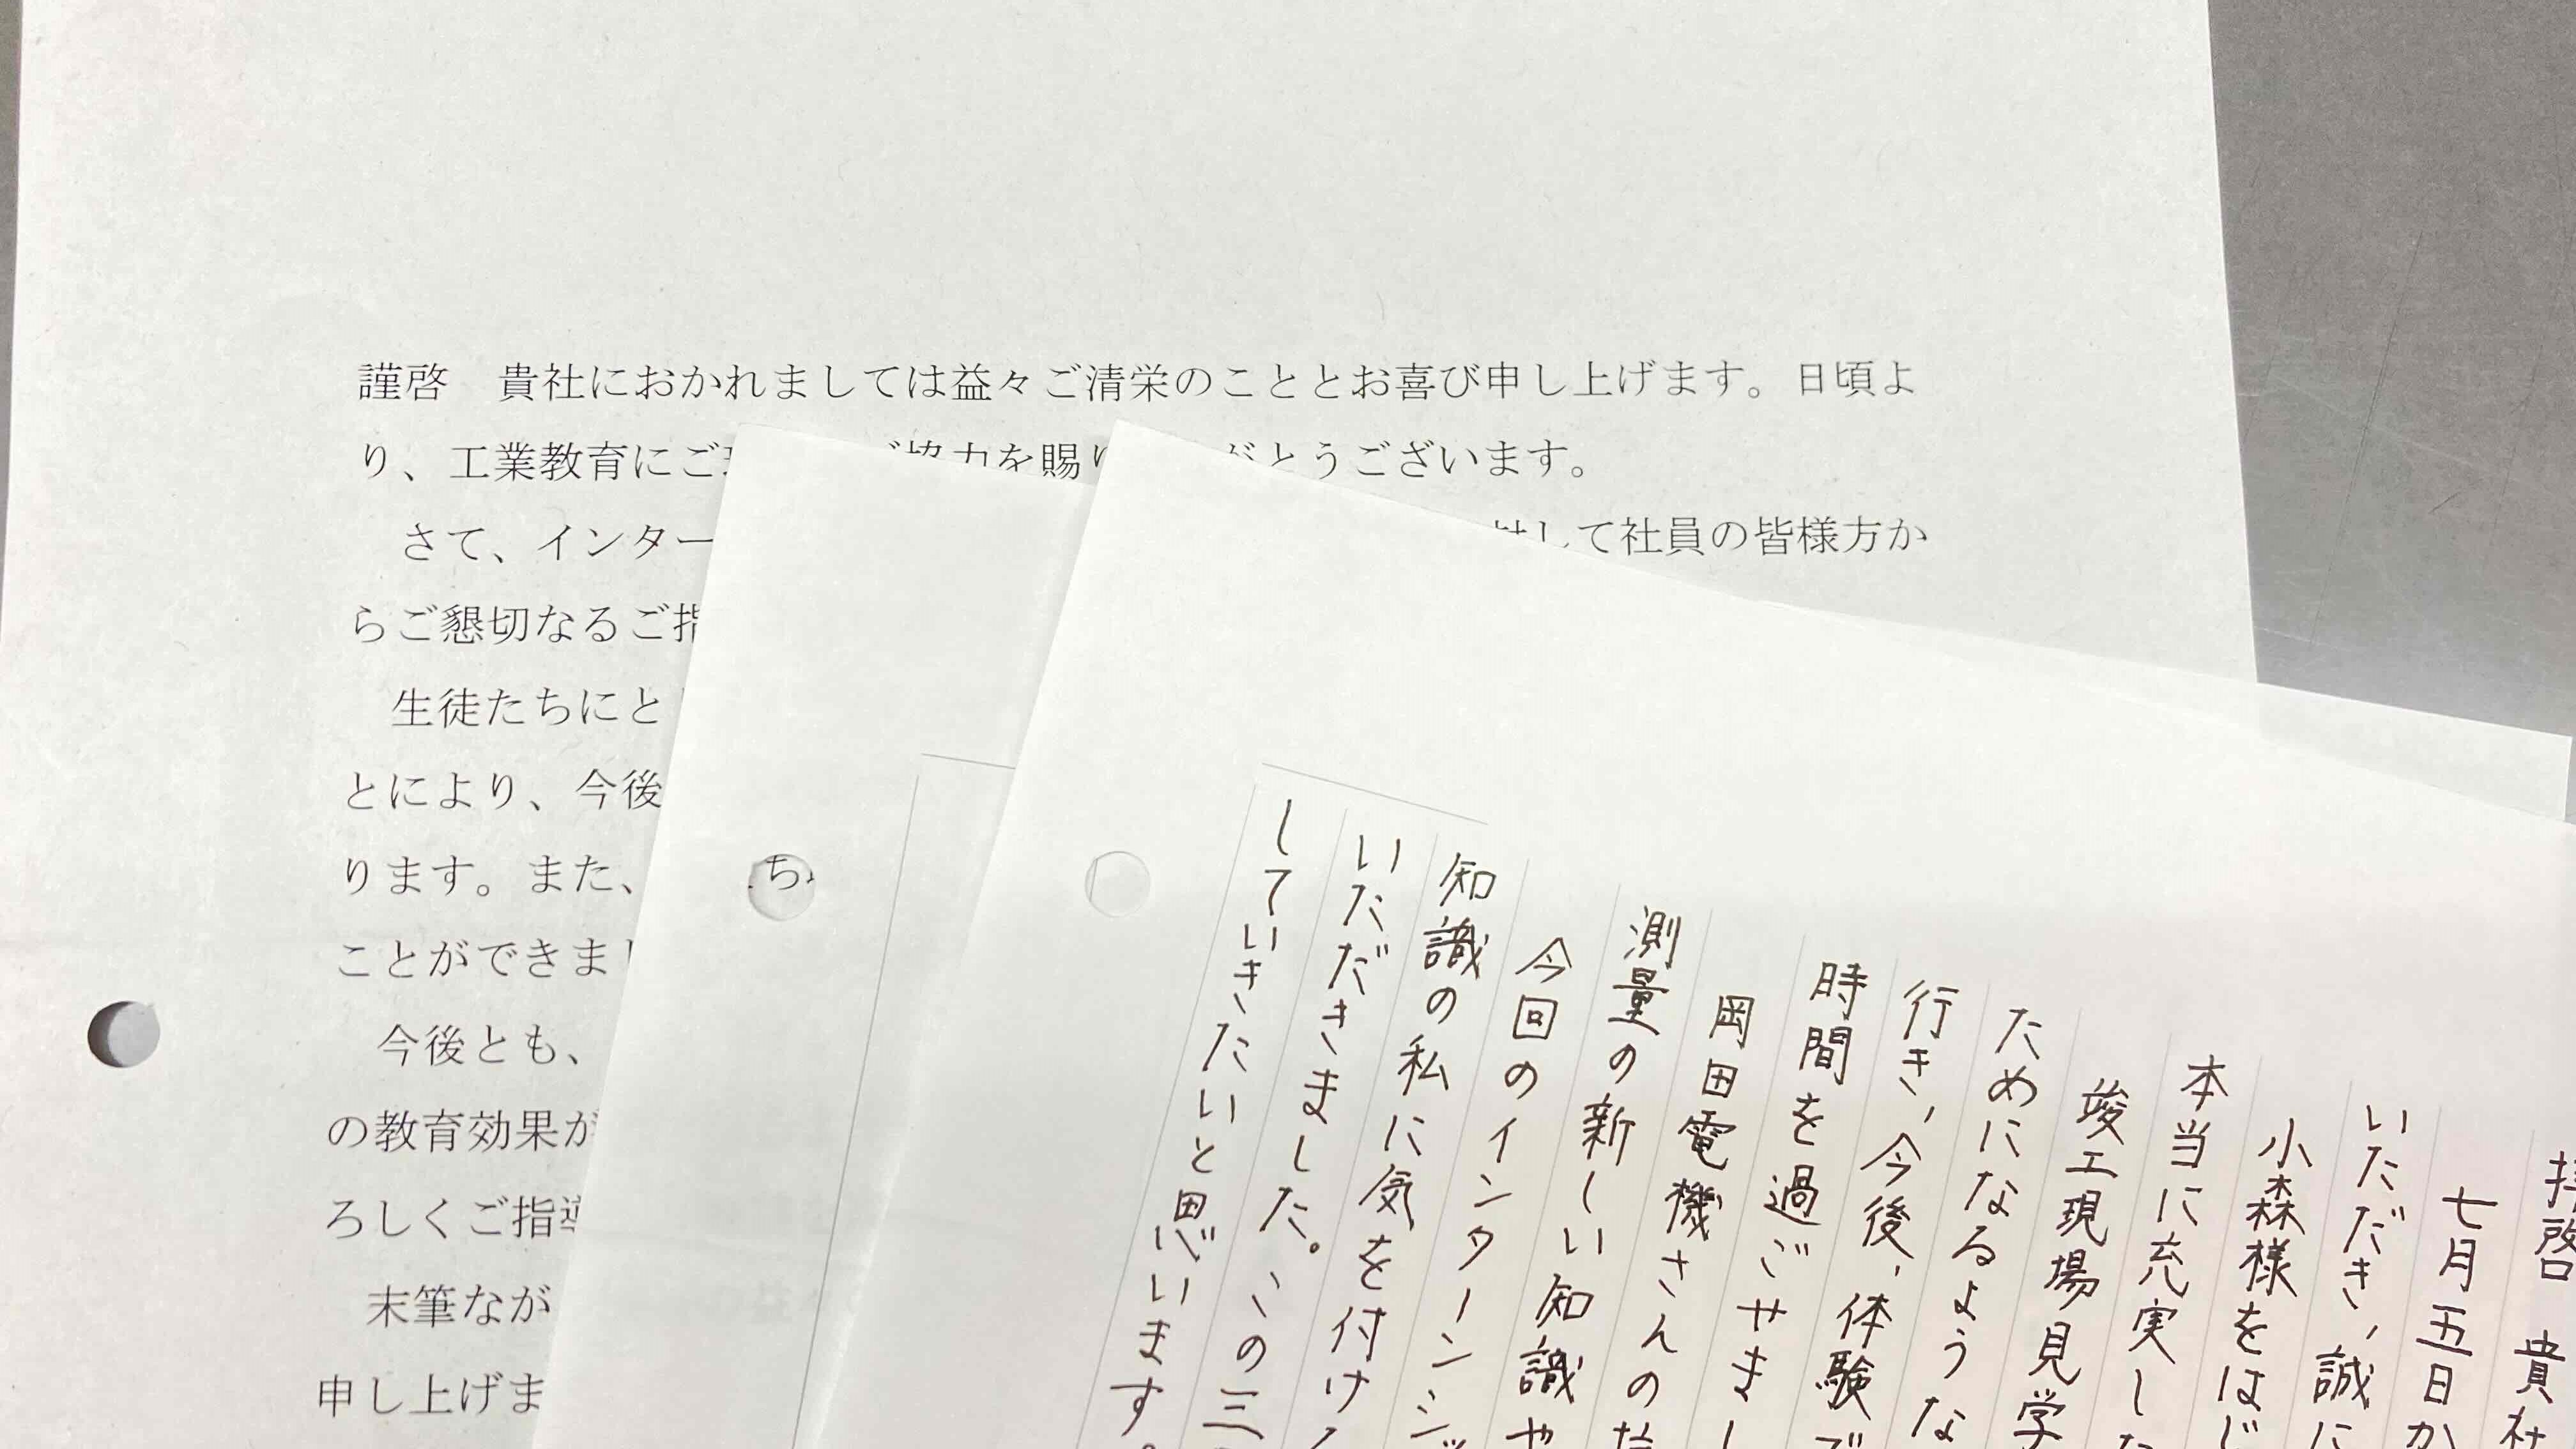 謹啓　貴社におかれましては益々ご清栄のこととお喜び申し上げます。日頃よ
り、工業教育にご　ご協力を賜り　がとうございます。
さて、インター　対して社員の皆様方か
らご懇切なるご指
生徒たちにと
とにより、今後
ります。また、
ことができまし
今後とも、
の教育効果が
ろしくご指導
末筆なが
申し上げま
ち
拝啓　貴社
七月五日か
いただき、誠に
小森様をはじ
本当に充実した
竣工現場見学
ためになるような
行き、今後、体験で
時間を過ごせまし
岡田電機さんの
測量の新しい知識や
今回のインターンシ
知識の私に気を付け
いただきました。この三
していきたいと思います。